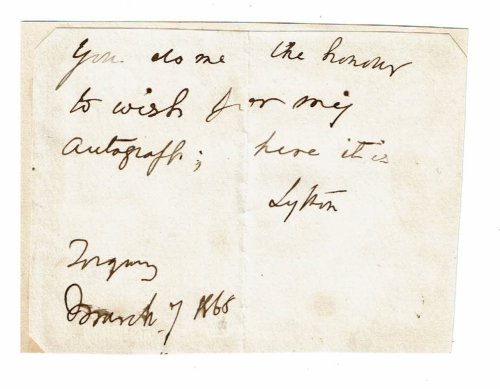 You do me the honour
to wish for my
Autograph; here it is
Lytton
Torquay
March 7 1868